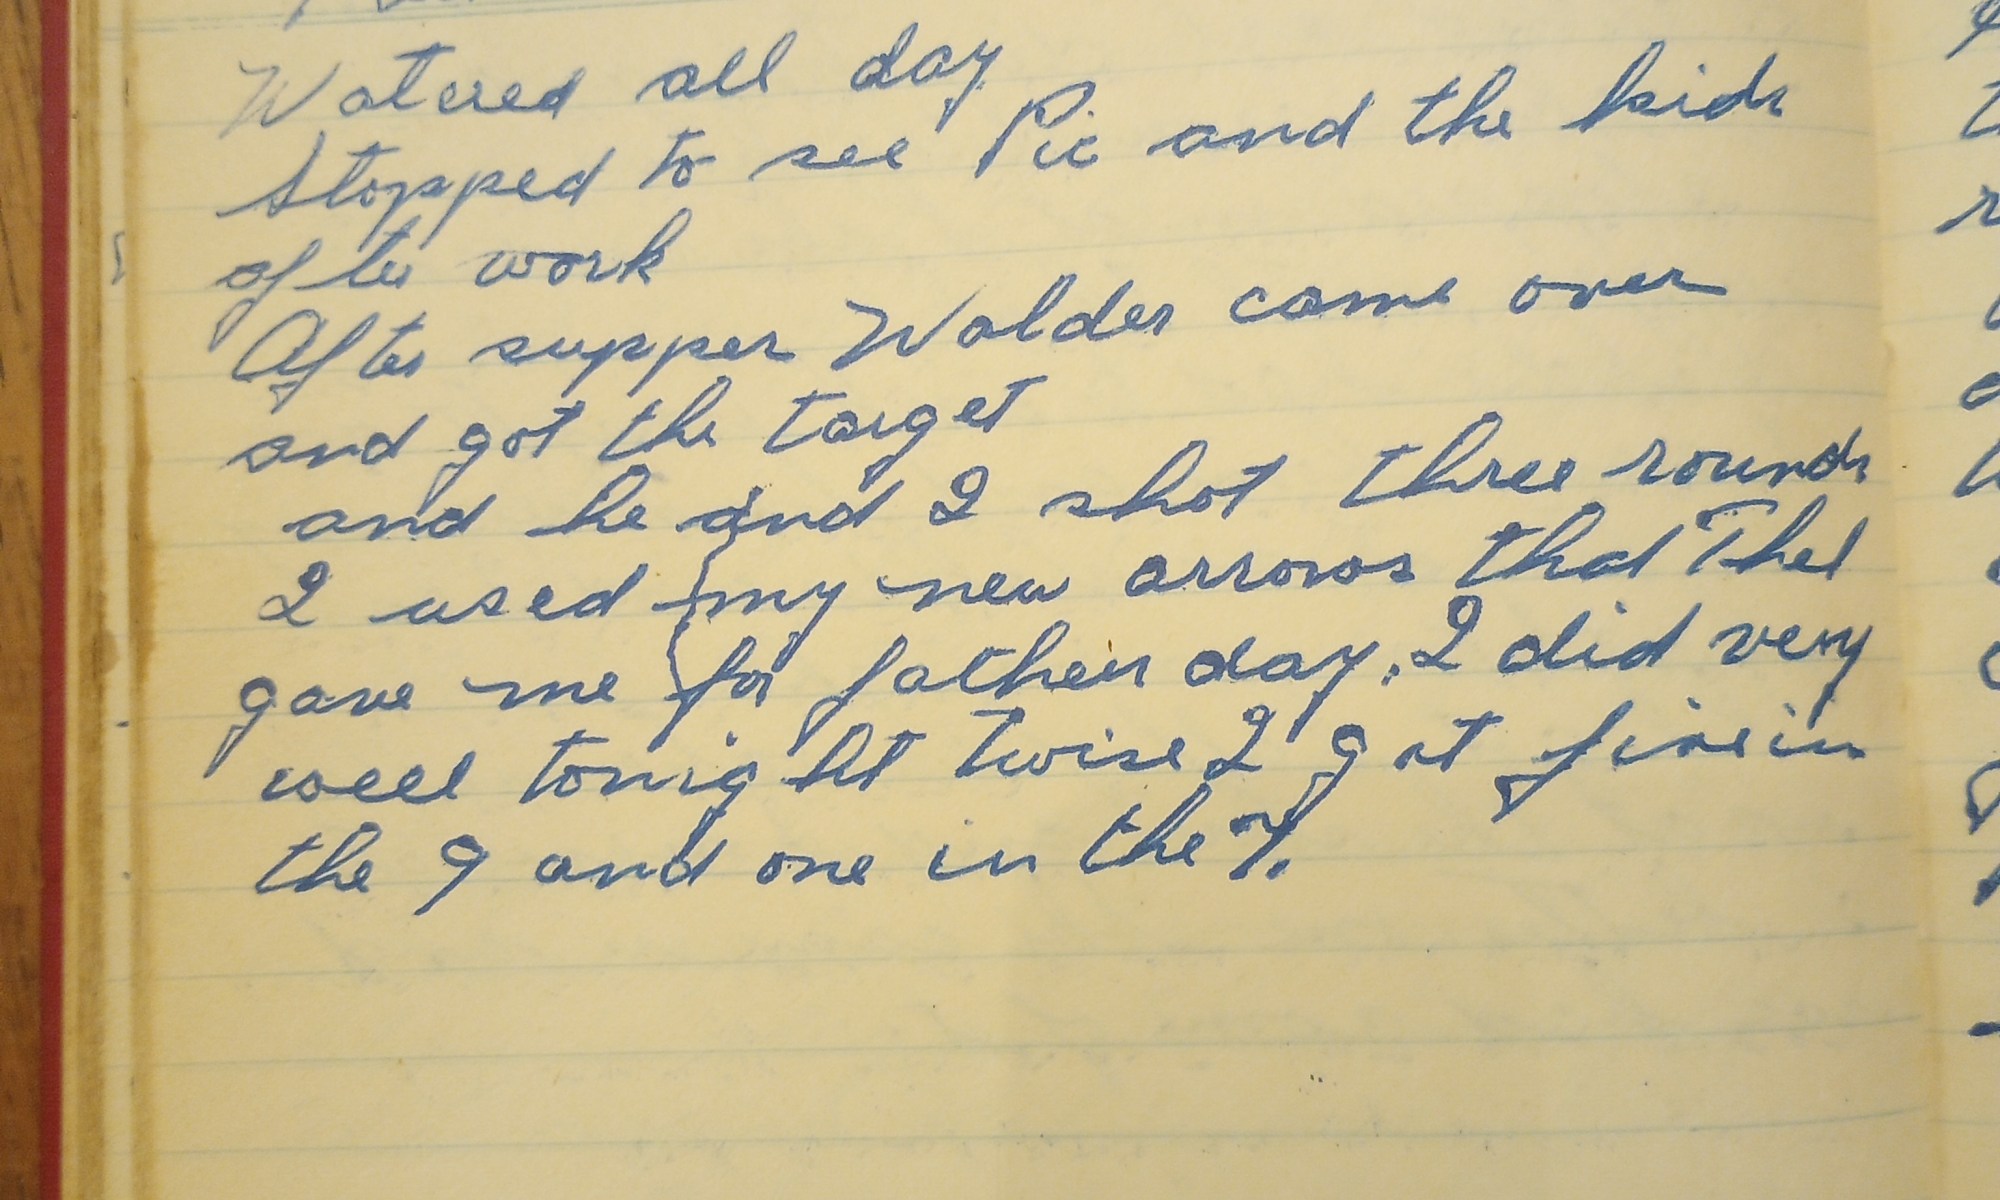 Watered all day
Stopped to see Pic and the kids
after work
After supper Walder came over
and got the target
and he and I shot three rounds
I used my new arrows that Thel
gave me for fathers day. I did very
well tonight twise I got five in
the 9 and one in the 7.